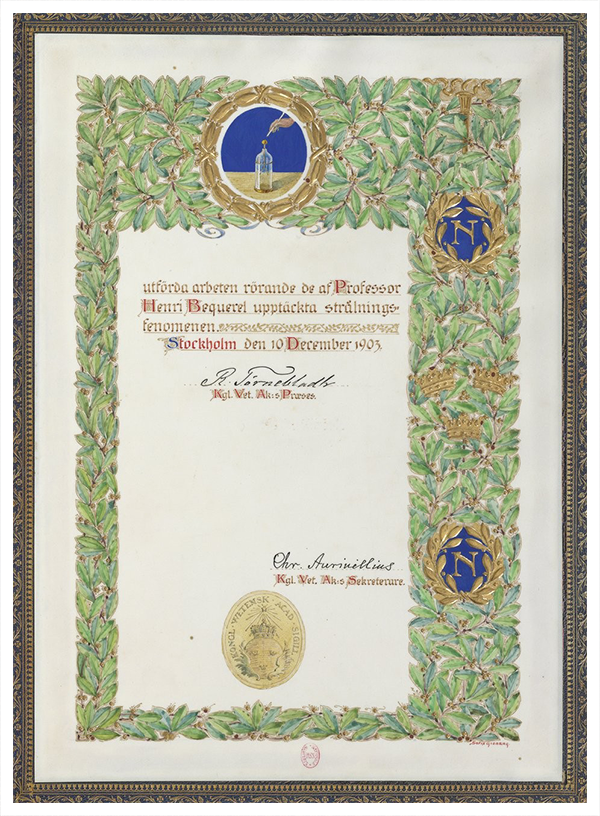 utförda arbeten rörande de af Professor
Henri Bequerel upptäckta strålnings-
fenomenen.
Stockholm den 10 December 1903.
R. Törnebladh
Kgl. Vet. Ak:s Præses.
N
N
Chr. Aurivillius
Kgl. Vet. Ak:s Sekreterare.
KONGL. VETENSK. ACAD. SIGILL